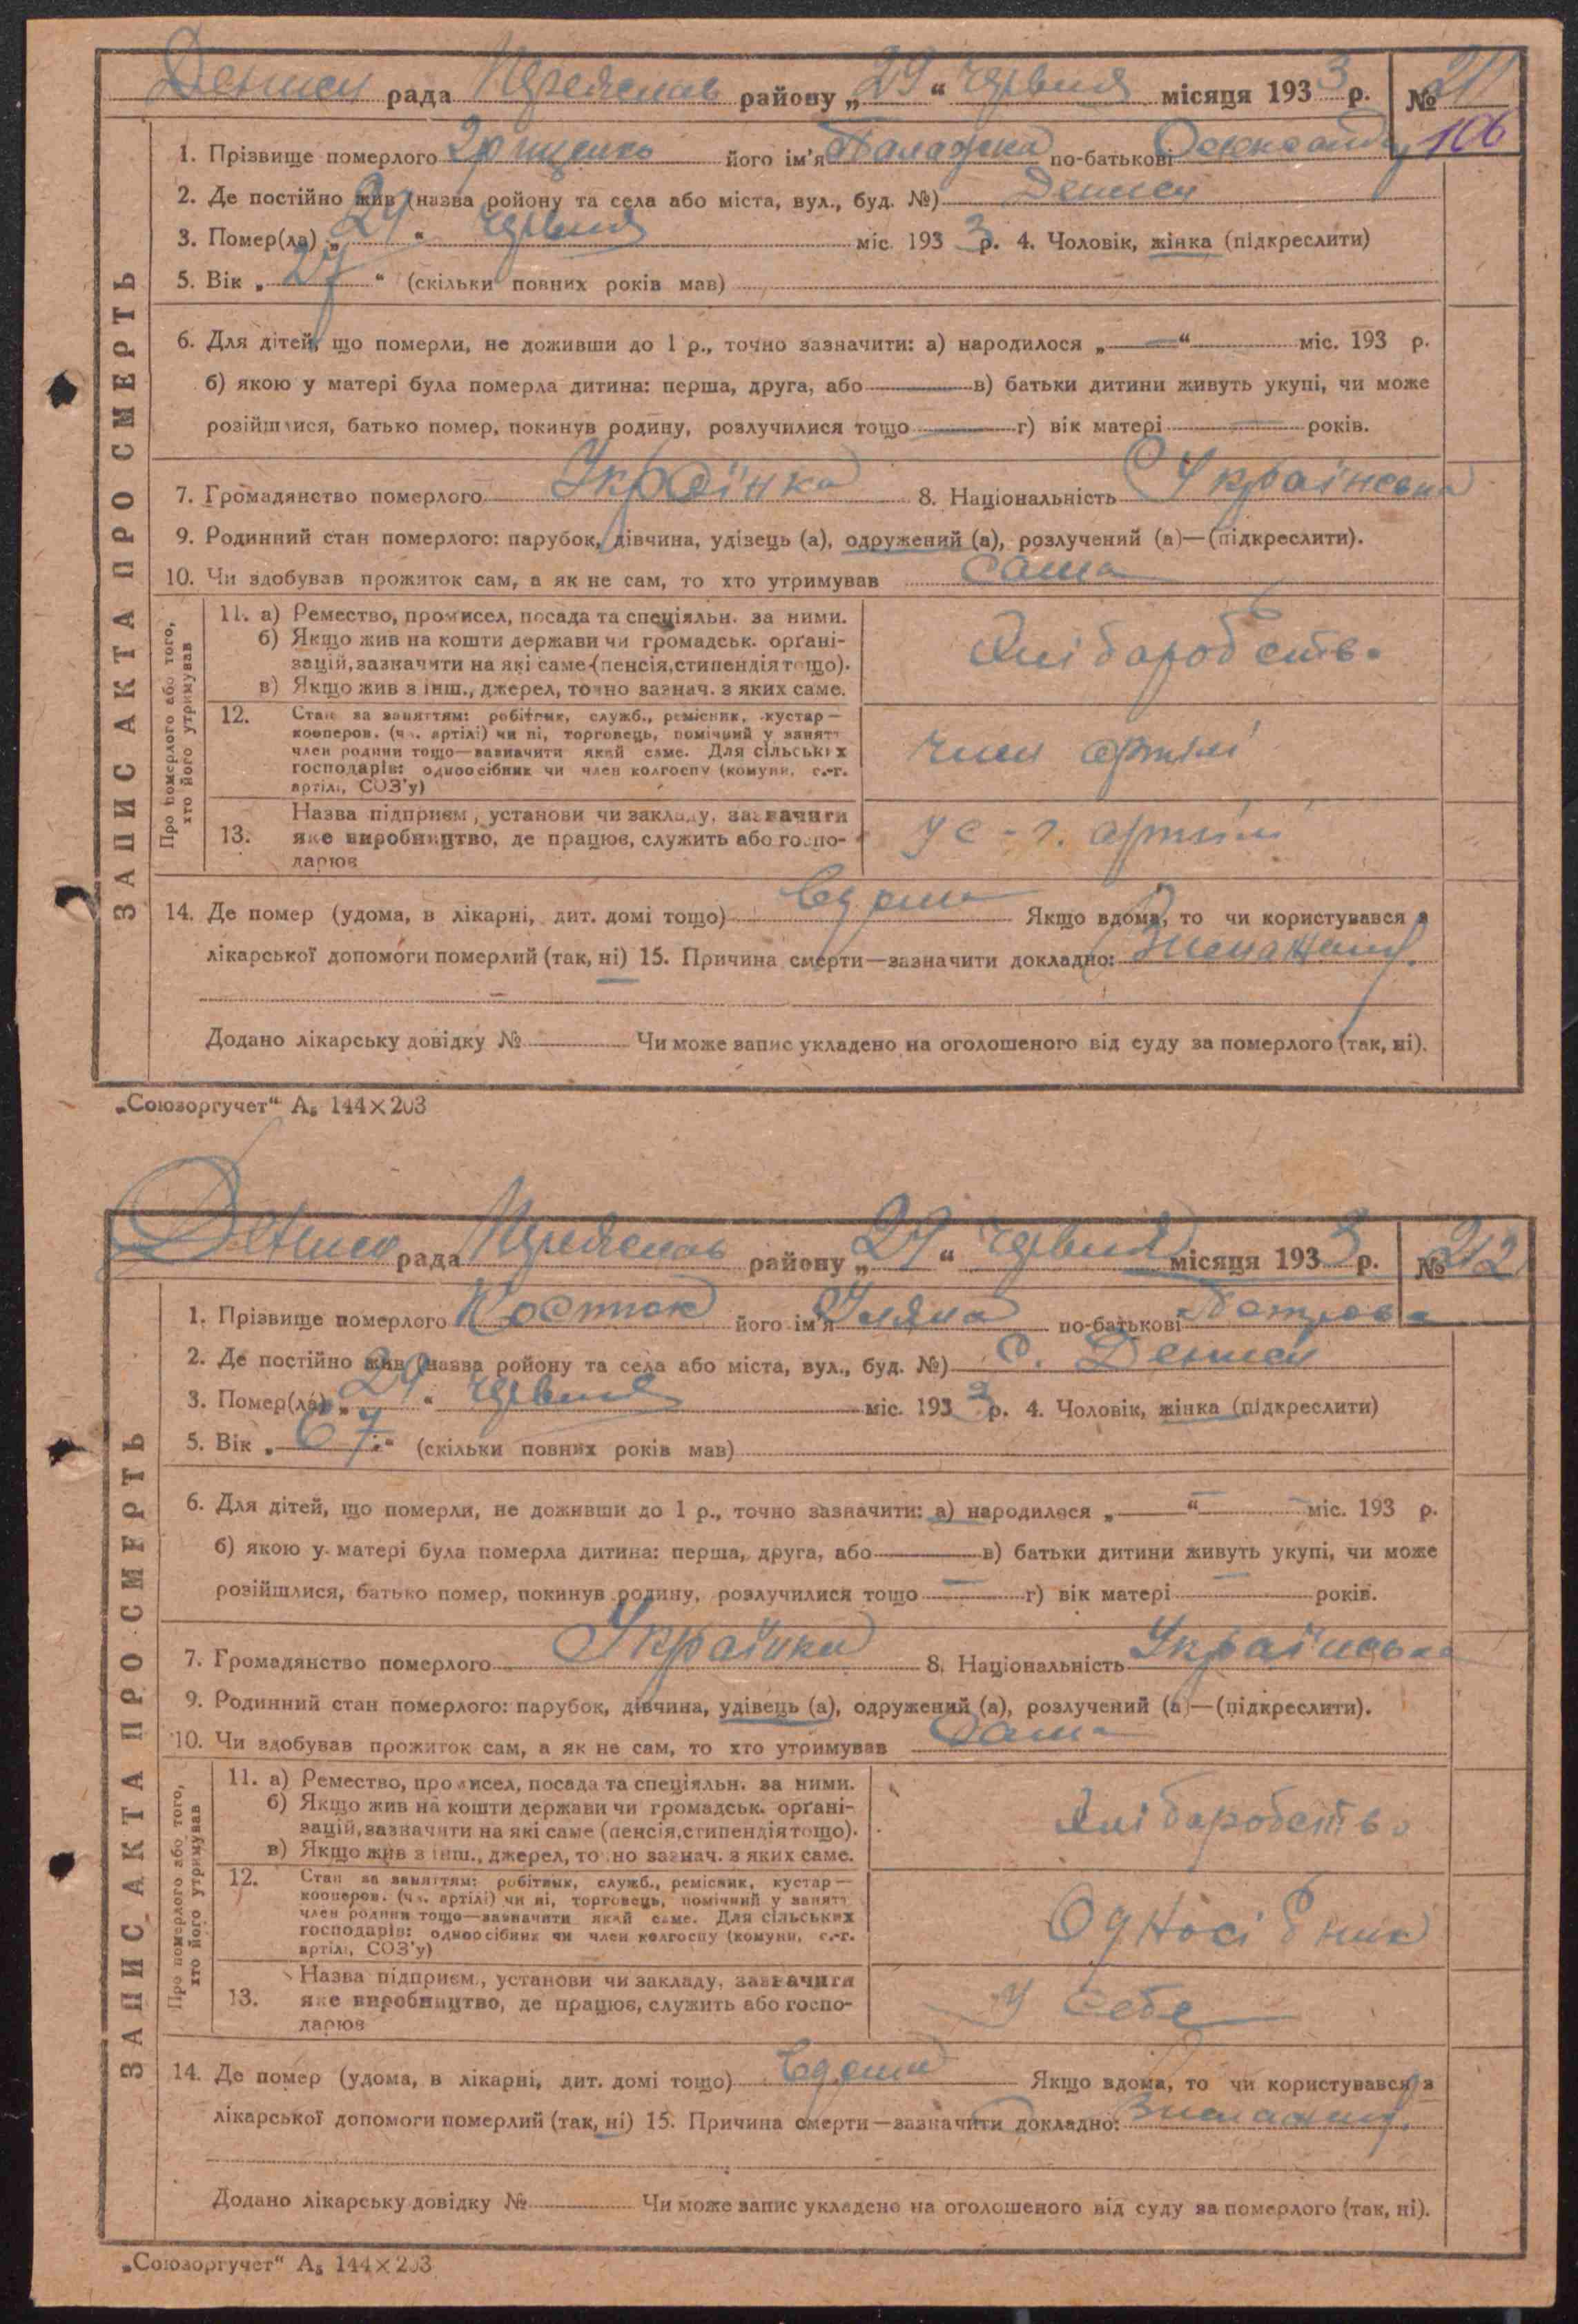 Дениси рада Переяслав району „29“ червня місяця 1933 р. № 211
106
1. Прізвище померлого Грищенко його ім'я Палажка по-батькові
2. Де постійно жив (назва ройону та села або міста, вул., буд. №) Дениси
3. Помер(ла) „29“ червня міс. 1933 р. 4. Чоловік, жінка (підкреслити)
5. Вік „27“ (скільки повних років мав)
6. Для дітей, що померли, не доживши до 1 р., точно зазначити: а) народилося „—“ міс. 193 р.
б) якою у матері була померла дитина: перша, друга, або — в) батьки дитини живуть укупі, чи може
розійшлися, батько помер, покинув родину, розлучилися тощо — г) вік матері — років.
7. Громадянство померлого Українка 8. Національність Українська
9. Родинний стан померлого: парубок, дівчина, удівець (а), одружений (а), розлучений (а)—(підкреслити).
10. Чи здобував прожиток сам, а як не сам, то хто утримував сама
ЗАПИС АКТА ПРО СМЕРТЬ
Про померлого або того, хто його утримував
11. а) Ремество, промисел, посада та спеціяльн. за ними.
б) Якщо жив на кошти держави чи громадськ. орґані-
зацій, зазначити на які саме (пенсія, стипендія тощо).
в) Якщо жив з інш., джерел, точно зазнач. з яких саме.
Хліборобств.
12. Стан за заняттям: робітник, служб., ремісник, кустар—
кооперов. (чл. артілі) чи ні, торговець, помічний у занятт
член родини тощо—зазначити який саме. Для сільських
господарів: одноосібник чи член колгоспу (комуни, с.-г.
артілі, СОЗ'у)
член артілі
13. Назва підприєм., установи чи закладу, зазначити
яке виробництво, де працює, служить або госпо-
дарює
у с-г. артілі
14. Де помер (удома, в лікарні, дит. домі тощо) вдома Якщо вдома, то чи користувався з
лікарської допомоги померлий (так, ні) 15. Причина смерти—зазначити докладно: Виснаження
Додано лікарську довідку № Чи може запис укладено на оголошеного від суду за померлого (так, ні).
„Союзоргучет“ А₅ 144×203
Дениси рада Переяслав району „29“ червня місяця 1933 р. № 212
1. Прізвище померлого Костюк його ім'я Уляна по-батькові Петрова
2. Де постійно жив (назва ройону та села або міста, вул., буд. №) С. Дениси
3. Помер(ла) „29“ червня міс. 1933 р. 4. Чоловік, жінка (підкреслити)
5. Вік „67“ (скільки повних років мав)
6. Для дітей, що померли, не доживши до 1 р., точно зазначити: а) народилося „—“ міс. 193 р.
б) якою у матері була померла дитина: перша, друга, або — в) батьки дитини живуть укупі, чи може
розійшлися, батько помер, покинув родину, розлучилися тощо — г) вік матері — років.
7. Громадянство померлого Українка 8. Національність Українська
9. Родинний стан померлого: парубок, дівчина, удівець (а), одружений (а), розлучений (а)—(підкреслити).
10. Чи здобував прожиток сам, а як не сам, то хто утримував сама
ЗАПИС АКТА ПРО СМЕРТЬ
Про померлого або того, хто його утримував
11. а) Ремество, промисел, посада та спеціяльн. за ними.
б) Якщо жив на кошти держави чи громадськ. орґані-
зацій, зазначити на які саме (пенсія, стипендія тощо).
в) Якщо жив з інш., джерел, точно зазнач. з яких саме.
Хліборобств.
12. Стан за заняттям: робітник, служб., ремісник, кустар—
кооперов. (чл. артілі) чи ні, торговець, помічний у занятт
член родини тощо—зазначити який саме. Для сільських
господарів: одноосібник чи член колгоспу (комуни, с.-г.
артілі, СОЗ'у)
Односібник
13. Назва підприєм., установи чи закладу, зазначити
яке виробництво, де працює, служить або госпо-
дарює
У себе
14. Де помер (удома, в лікарні, дит. домі тощо) вдома Якщо вдома, то чи користувався з
лікарської допомоги померлий (так, ні) 15. Причина смерти—зазначити докладно: Виснаження
Додано лікарську довідку № Чи може запис укладено на оголошеного від суду за померлого (так, ні).
„Союзоргучет“ А₅ 144×203